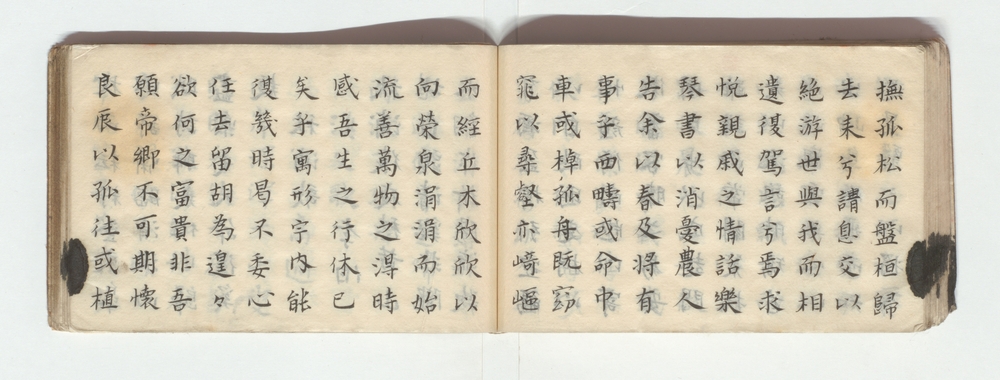 撫孤松而盤桓歸
去来兮請息交以
絶游世與我而相
遺復駕言兮焉求
悅親戚之情話樂
琴書以消憂農人
告余以春及将有
事乎西疇或命巾
車或棹孤舟既窈
窕以尋壑亦崎嶇
而經丘木欣欣以
向榮泉涓涓而始
流善萬物之得時
感吾生之行休已
矣乎寓形宇内能
復幾時曷不委心
任去留胡為遑々
欲何之富貴非吾
願帝鄉不可期懷
良辰以孤往或植